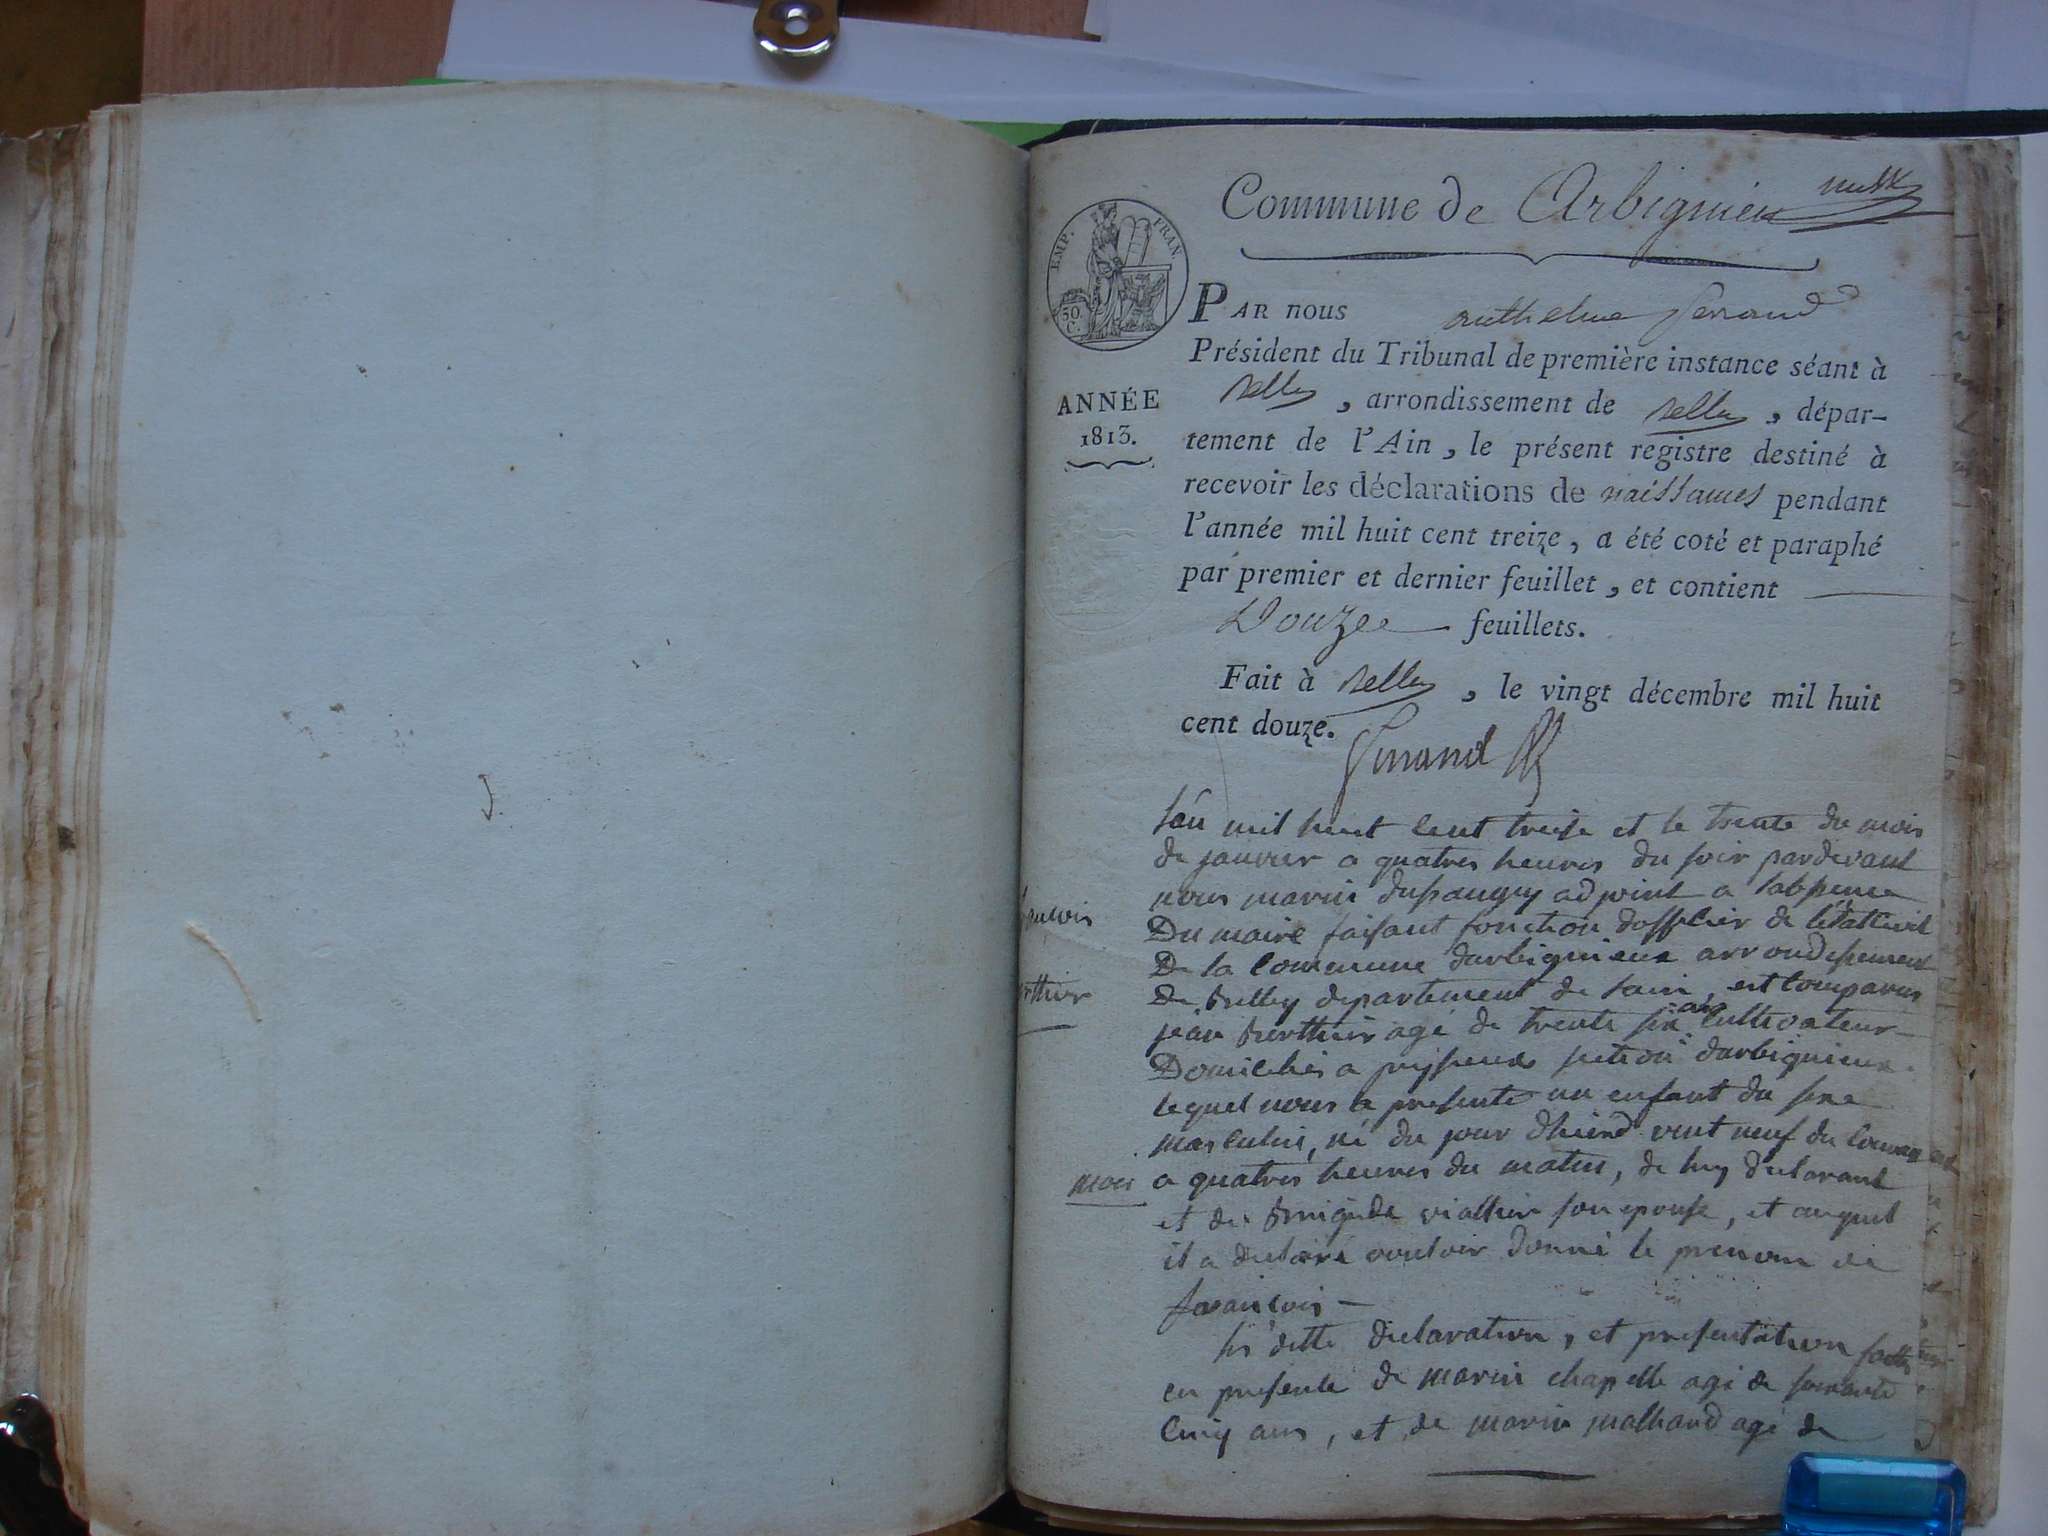 Commune de Arbignieu
EMP. FRAN.
30.
C.
PAR nous anthelme ferrand
Président du Tribunal de première instance séant à
Belley, arrondissement de Belley, dépar-
tement de l'Ain, le présent registre destiné à
recevoir les déclarations de naissances pendant
l'année mil huit cent treize, a été coté et paraphé
par premier et dernier feuillet, et contient
Douze feuillets.
Fait à Belley, le vingt décembre mil huit
cent douze.
ferrand
ANNÉE
1813.
L'an mil huit cent treise et le trente du mois
de janvier a quatres heures du soir pardevant
nous marin dupaugey adjoint a l'absence
Du maire faisant fonction dofficier de létatcivil
De la commune darbignieux arrondissement
de Belley departement de lain, est comparus
jean Berthier agé de trente six ans cultivateur
Domiciliés a peyssieux section darbignieux
lequel nous a presenté un enfant du sexe
masculin, né du jour dhierd vent neuf du courant
mois a quatres heures du matin, de luy declarant
et de Brigide viallier son epouse, et auquel
il a declaré vouloir donné le prenom de
francois
les ditte declaration, et presentation faittes
en presence de marin chapelle agé de soixante
cinq ans, et de marin malhand agé de